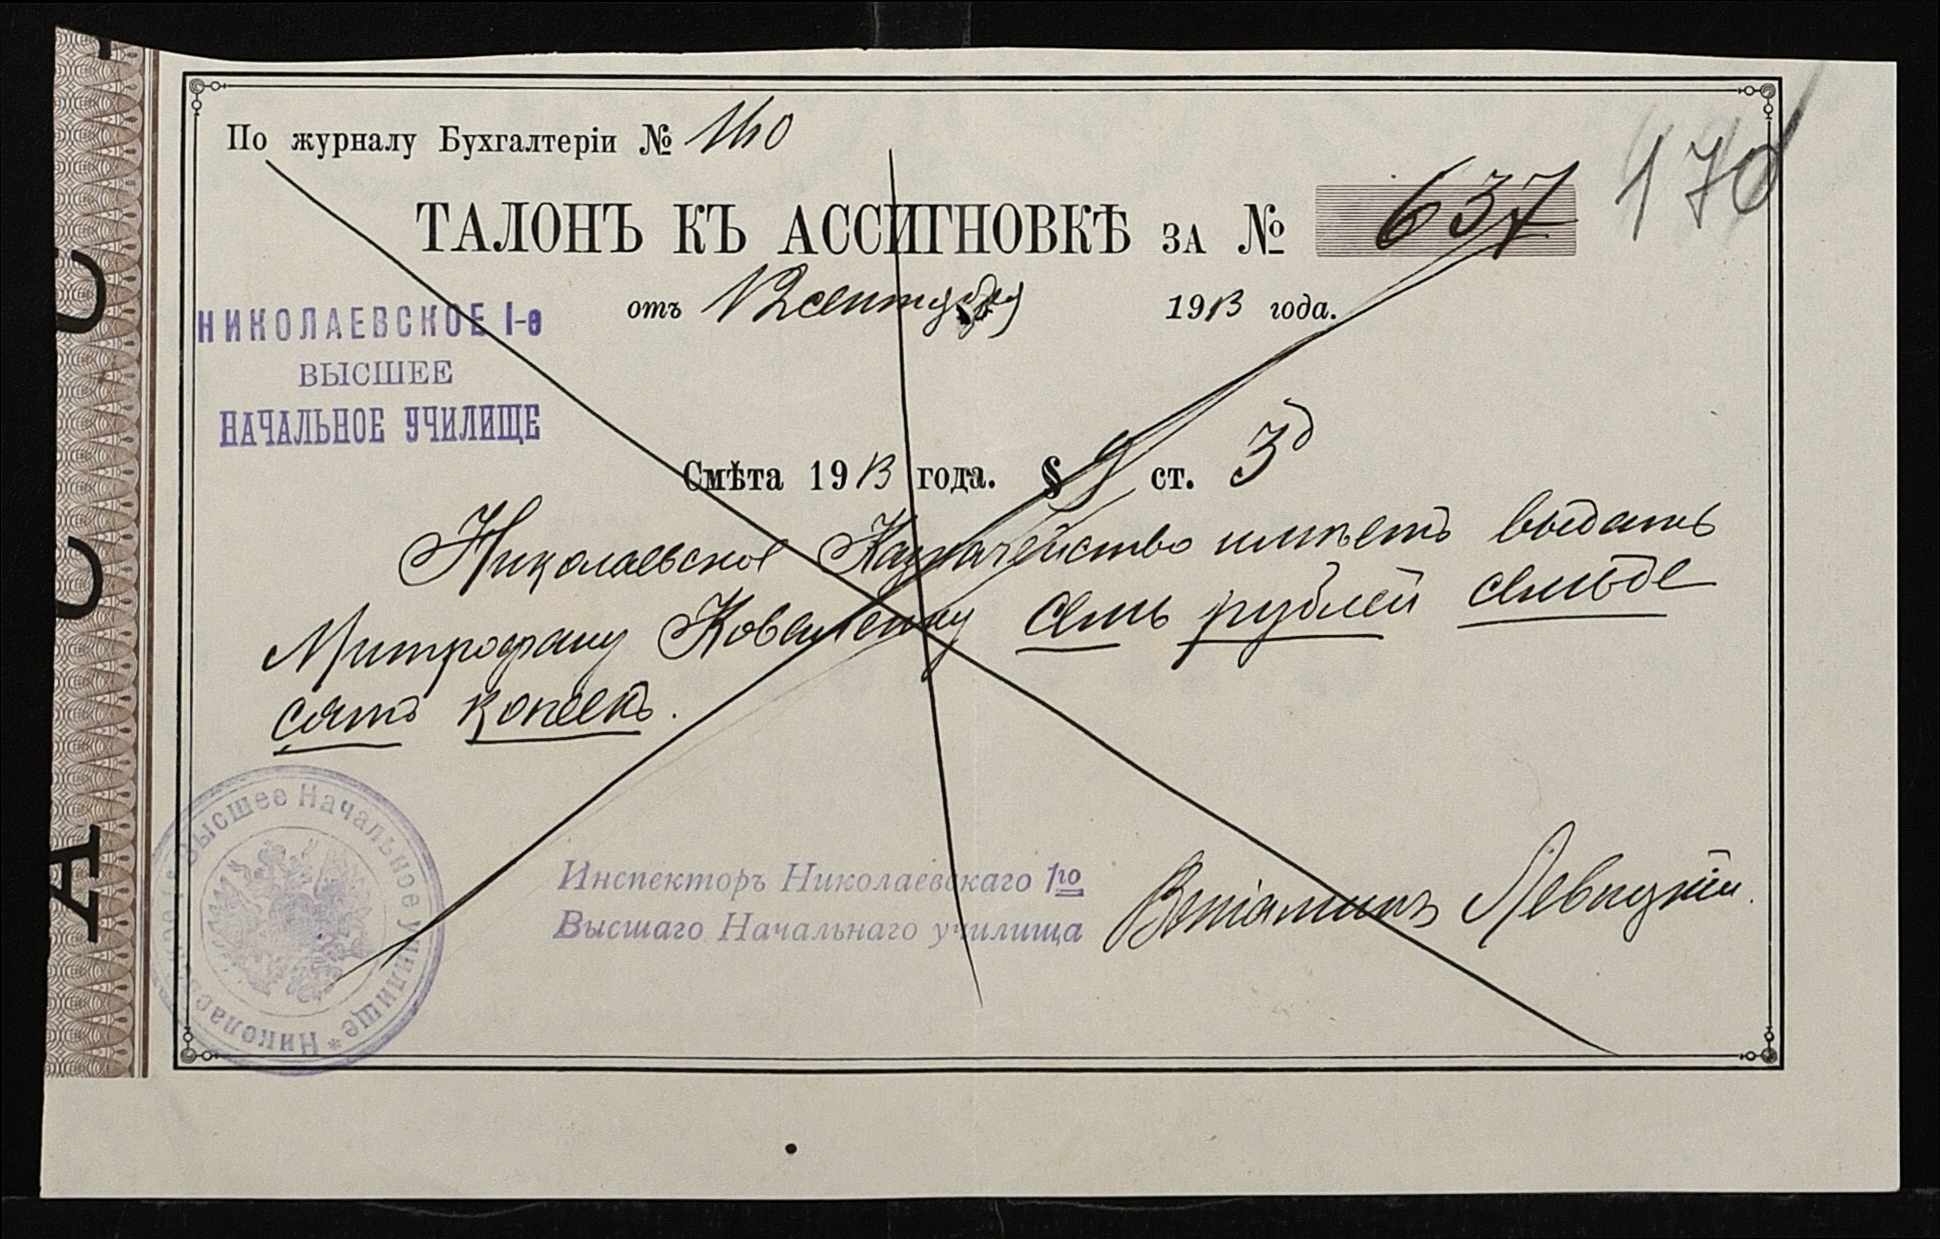 По журналу Бухгалтеріи № 140
170
ТАЛОНЪ КЪ АССИГНОВКѢ ЗА № 637
отъ 12 сентября 1913 года.
НИКОЛАЕВСКОЕ I-е
ВЫСШЕЕ
НАЧАЛЬНОЕ УЧИЛИЩЕ
Смѣта 1913 года. § 9 ст. 3д
Николаевское Казначейство имѣетъ выдать
Митрофану Коваленку семь рублей семьде
сятъ копѣекъ.
Высшее Начальное училище * Николаевское
Инспекторъ Николаевскаго 1го
Высшаго Начальнаго училища
Веніаминъ Левицкій.
А С С